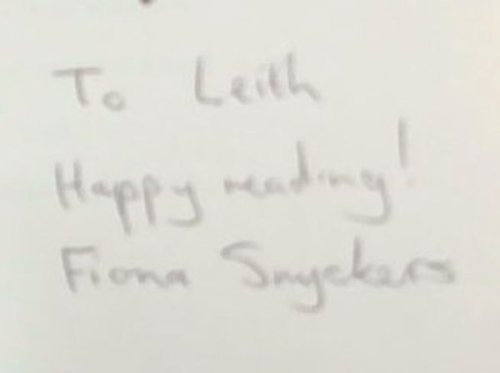 To Leith
Happy reading!
Fiona Snyckers